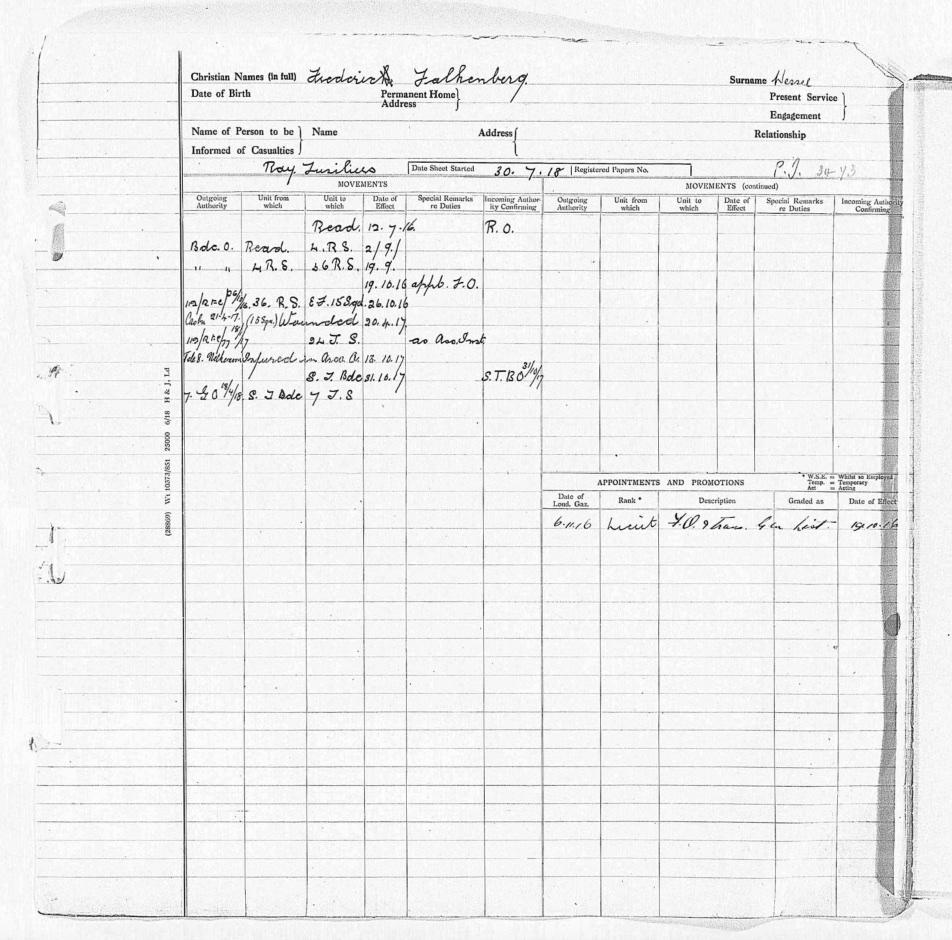 Christian Names (in full) Frederick Falkenberg Surname Wessel
Date of Birth Permanent Home Address Present Service Engagement
Name of Person to be Informed of Casualties Name Address Relationship
Roy. Fusiliers Date Sheet Started 30.7.18 Registered Papers No. P.I.
MOVEMENTS
Outgoing Authority Unit from which Unit to which Date of Effect Special Remarks re Duties Incoming Authority Confirming
Read. 12.7.16. R.O.
Bdc. O. Read. 4.R.S. 2/9/
" " 4 R.S. 36 R.S. 19.9.
19.10.16 appb. F.O.
36. R.S. E.F. 15 Sqd. 26.10.16
21-4-17. (15 Sqn.) Wounded 20.4.17.
24 T. S. as Ass. Inst
Injured in 13.10.17
S. T. Bdc 31.10.17 S.T.B O 31/10/17
7. G O 18/4/18. S. T Bdc 7 T.S
MOVEMENTS (continued)
Outgoing Authority Unit from which Unit to which Date of Effect Special Remarks re Duties Incoming Authority Confirming
* W.S.E. = Whilst so Employed
Temp. = Temporary
Act = Acting
APPOINTMENTS AND PROMOTIONS
Date of Lond. Gaz. Rank * Description Graded as Date of Effect
6.11.16 Lieut F.O. & trans. Gen List. 19.10.16
(28869) Wt 10573/851 25000 6/18 H & J, Ld